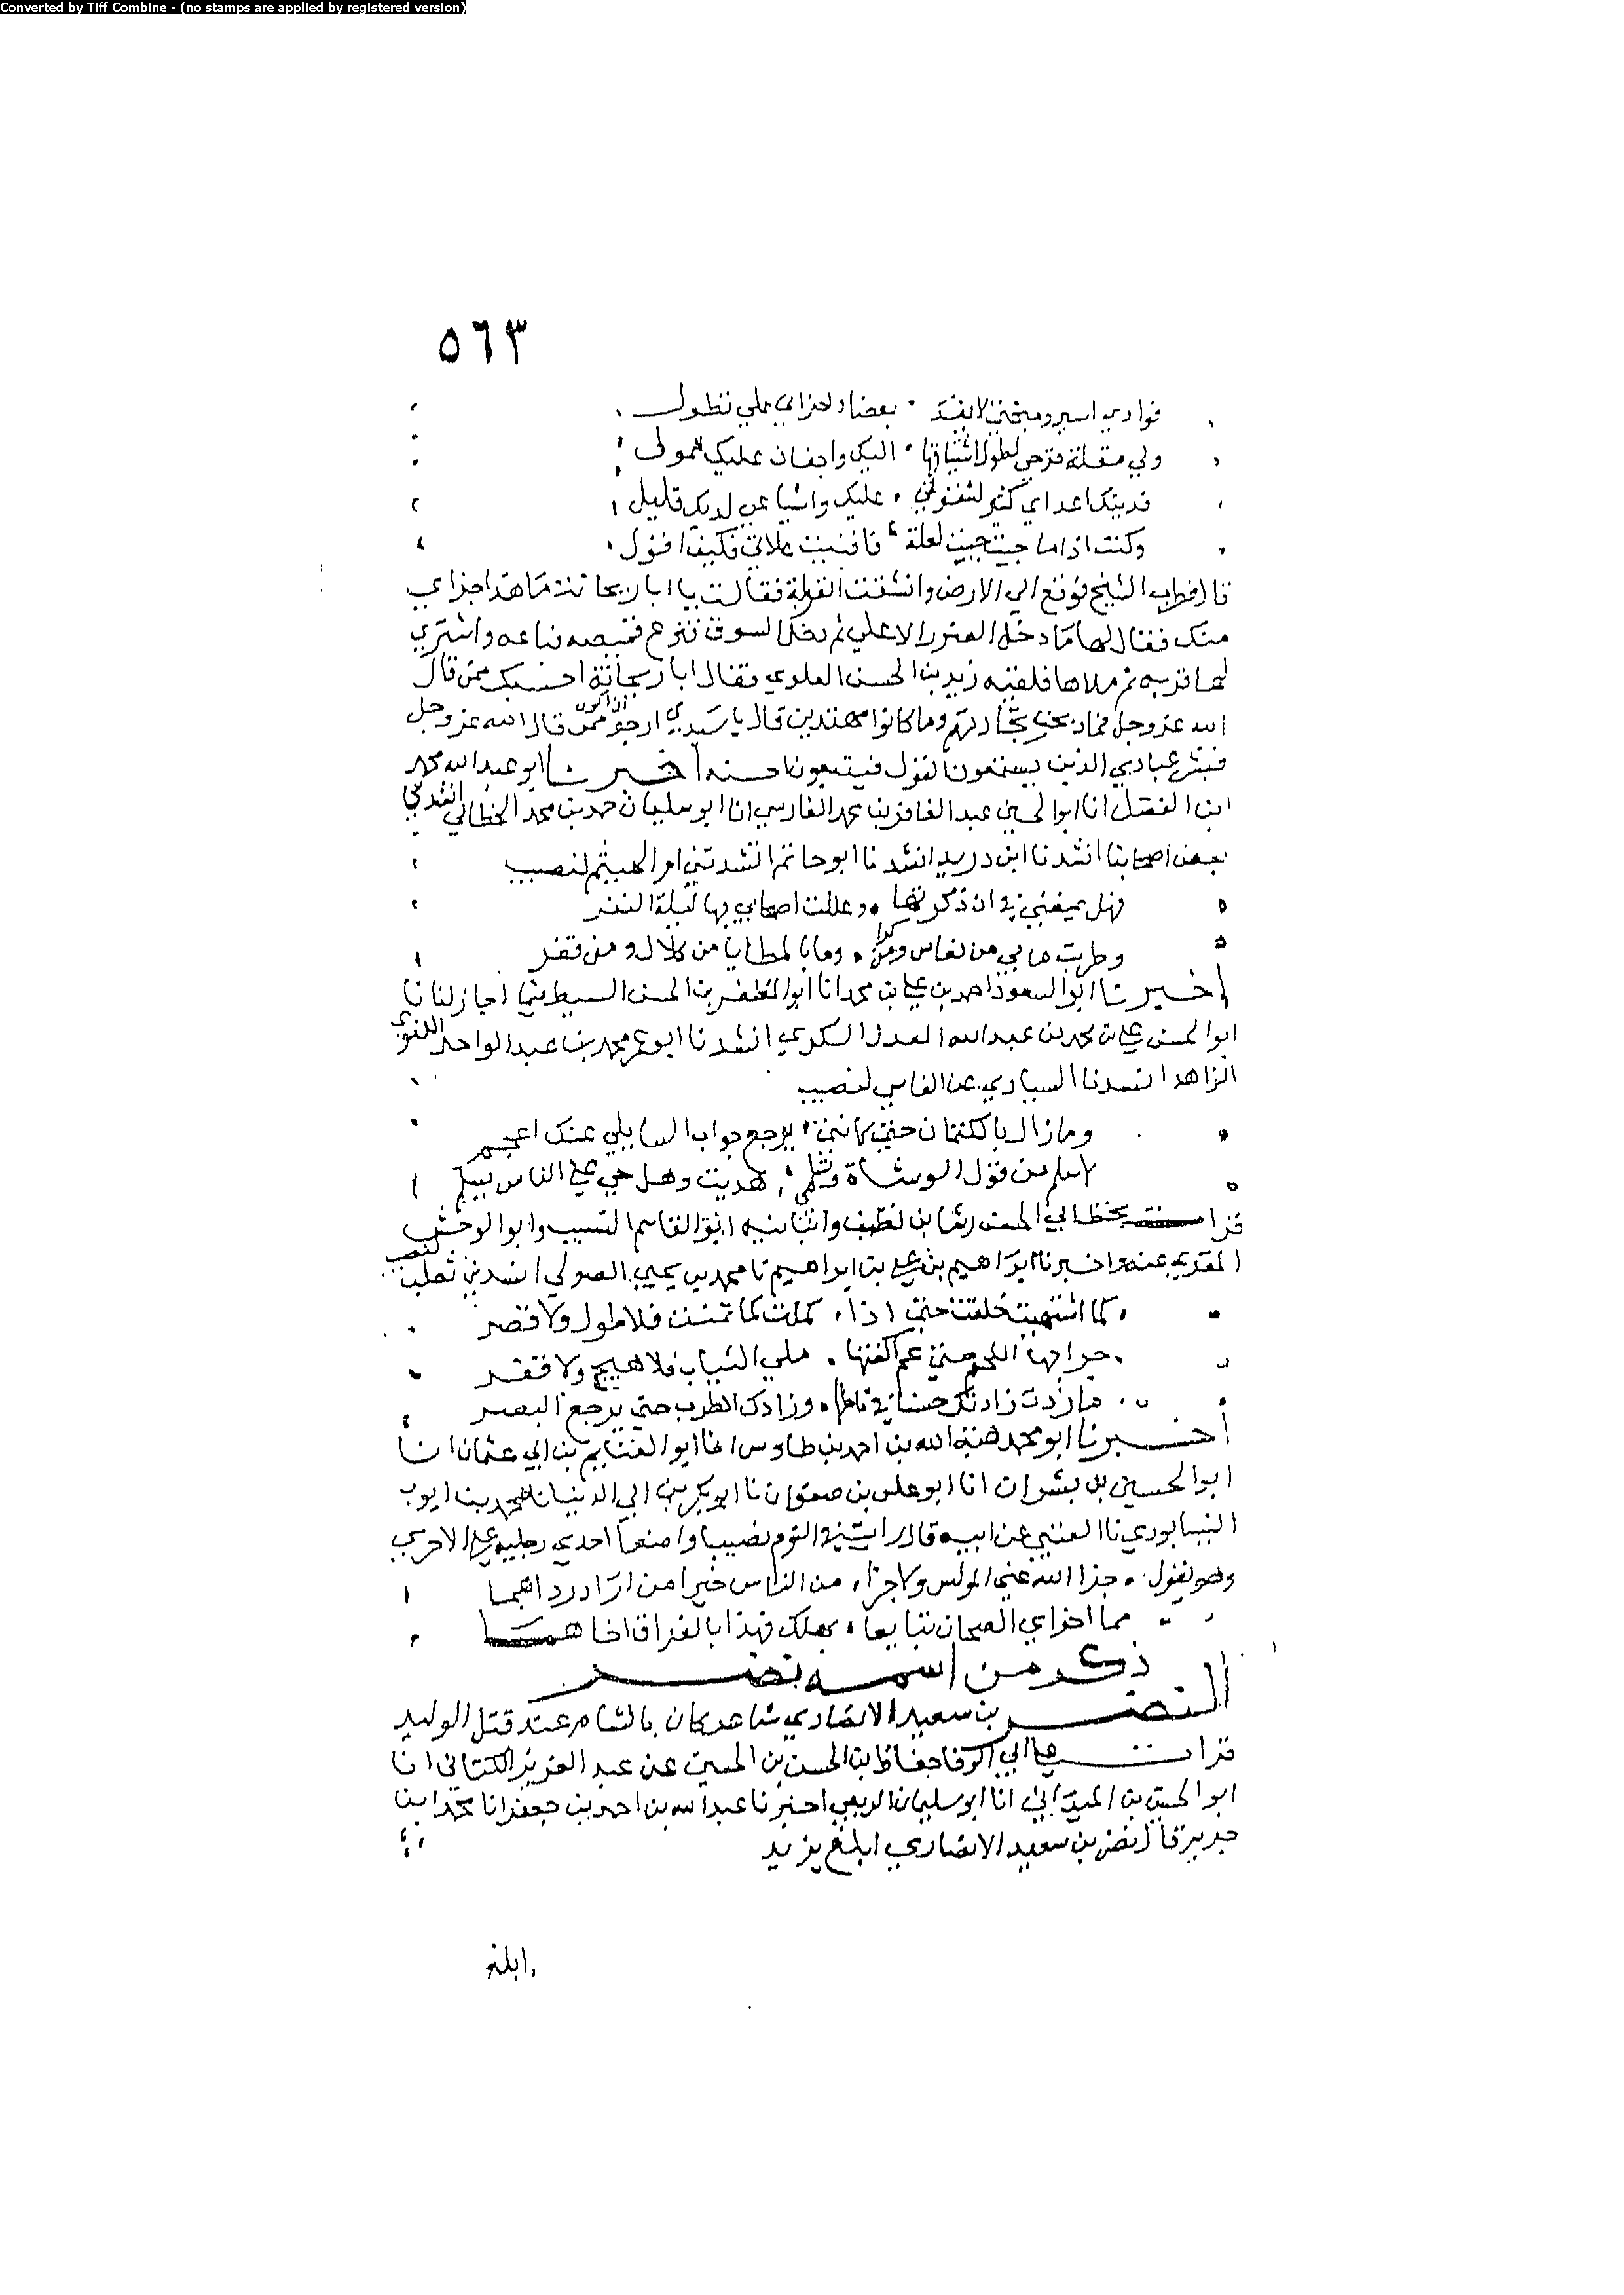 Converted by Tiff Combine - (no stamps are applied by registered version)
٥٦٣
فوادي اسير ومبختي لا يفك . بعضا ولحزاني علي تطول
ولي مقلة قرحي لطول اشتياقها . اليك واجفان عليك همول
فديتك اعداي كثير لشفوتي . عليك واشياعي لديك قليل
وكنت اذا ما جيت جيت لعلة . فافنيت علاتي فكيف اقول
قال فطرب الشيخ فوقع الي الارض وانشقت القربة فقالت يا ابا ريحانة ما هذا جزاي
منك فقال لها ما دخل السوق نزع قميصه فباعه واشتري
لها قربه ثم ملاها فلقيه زيد بن الحسن العلوي فقال ابا ريحانة احسبك ممن قال
الله عز وجل فما ربحت تجارتهم وما كانوا مهتدين قال يا سيدي ارجو ان اكون ممن قال الله عز وجل
فبشر عبادي الذين يستمعون القول فيتبعون احسنه اخبرنا ابو عبد الله محمد
ابن الفضل انا ابو الحسين عبد الغافر بن محمد الفارسي انا ابو سليمان حمد بن محمد الخطابي انشدني
بعض اصحابنا انشدنا ابن دريد انشدنا ابو حاتم انشدتني ام الهيثم لنصيب
فهل ان ذكرتها . وعللت اصحابي بها ليلة النفر
وطربت ما بي من نعاس ومن كرا . وما بالمطايا من كلال ومن فقر
اخبرنا ابو السعود احمد بن علي بن محمد انا ابو المظفر بن الحسن السبط فيما اجاز لنا نا
ابو الحسن علي بن محمد بن عبد الله المعدل السكري انشدنا ابو عمر محمد بن عبد الواحد اللغوي
الزاهد انشدنا السياري عن الفاسي لنصيب
وما زال بالكتمان حتي كانني . يرجع جواب السايلي عنك اعجم
لاسلم من قول الوشاة وتسلمي . هديت وهل حي علي الناس يسلم
قرات بخط ابي الحسن رشا بن نظيف وانبانيه ابو القاسم النسيب وابو الوحش
المقري عنه اخبرنا ابراهيم بن علي بن ابراهيم نا محمد بن يحيي الصولي انشدني ثعلب لنصيب
كما اشتهيت خلقت حتي اذا . كملت كما تمنيت فلا طول ولا قصر
جرا بها اللحم حتي عم اكعبها . ملي الشباب فلا هيج ولا فقر
ما زدت زادتك حسنا في تاملها . وزادك الطرب حتي يرجع البصر
اخبرنا ابو محمد هبة الله بن احمد بن طاوس انا ابو الغنايم بن ابي عثمان انا
ابو الحسين بن بشران انا ابو علي بن صفوان نا ابو بكر بن ابي الدنيا نا محمد بن ايوب
النيسابوري نا العتبي عن ابيه قال رايت في النوم نصيبا واضعا احدي رجليه علي الاخري
وهو يقول . جزا الله عني الموليس ولا جزا . من الناس خيرا من اراد رداهما
هما اخواي الصحان تتابعا .
ذكر من اسمه نضر
النضر بن سعيد الانصاري شاعر كان بالشام عند قتل الوليد
قرات علي ابي الوفا حفاظ بن الحسن بن الحسين عن عبد العزيز الكتاني انا
ابو الحسين بن الميداني انا ابو سليمان الربعي اخبرنا عبد الله بن احمد بن جعفر انا محمد ابن
جرير قال نضر بن سعيد الانصاري ابلغ يزيد
ابلغ